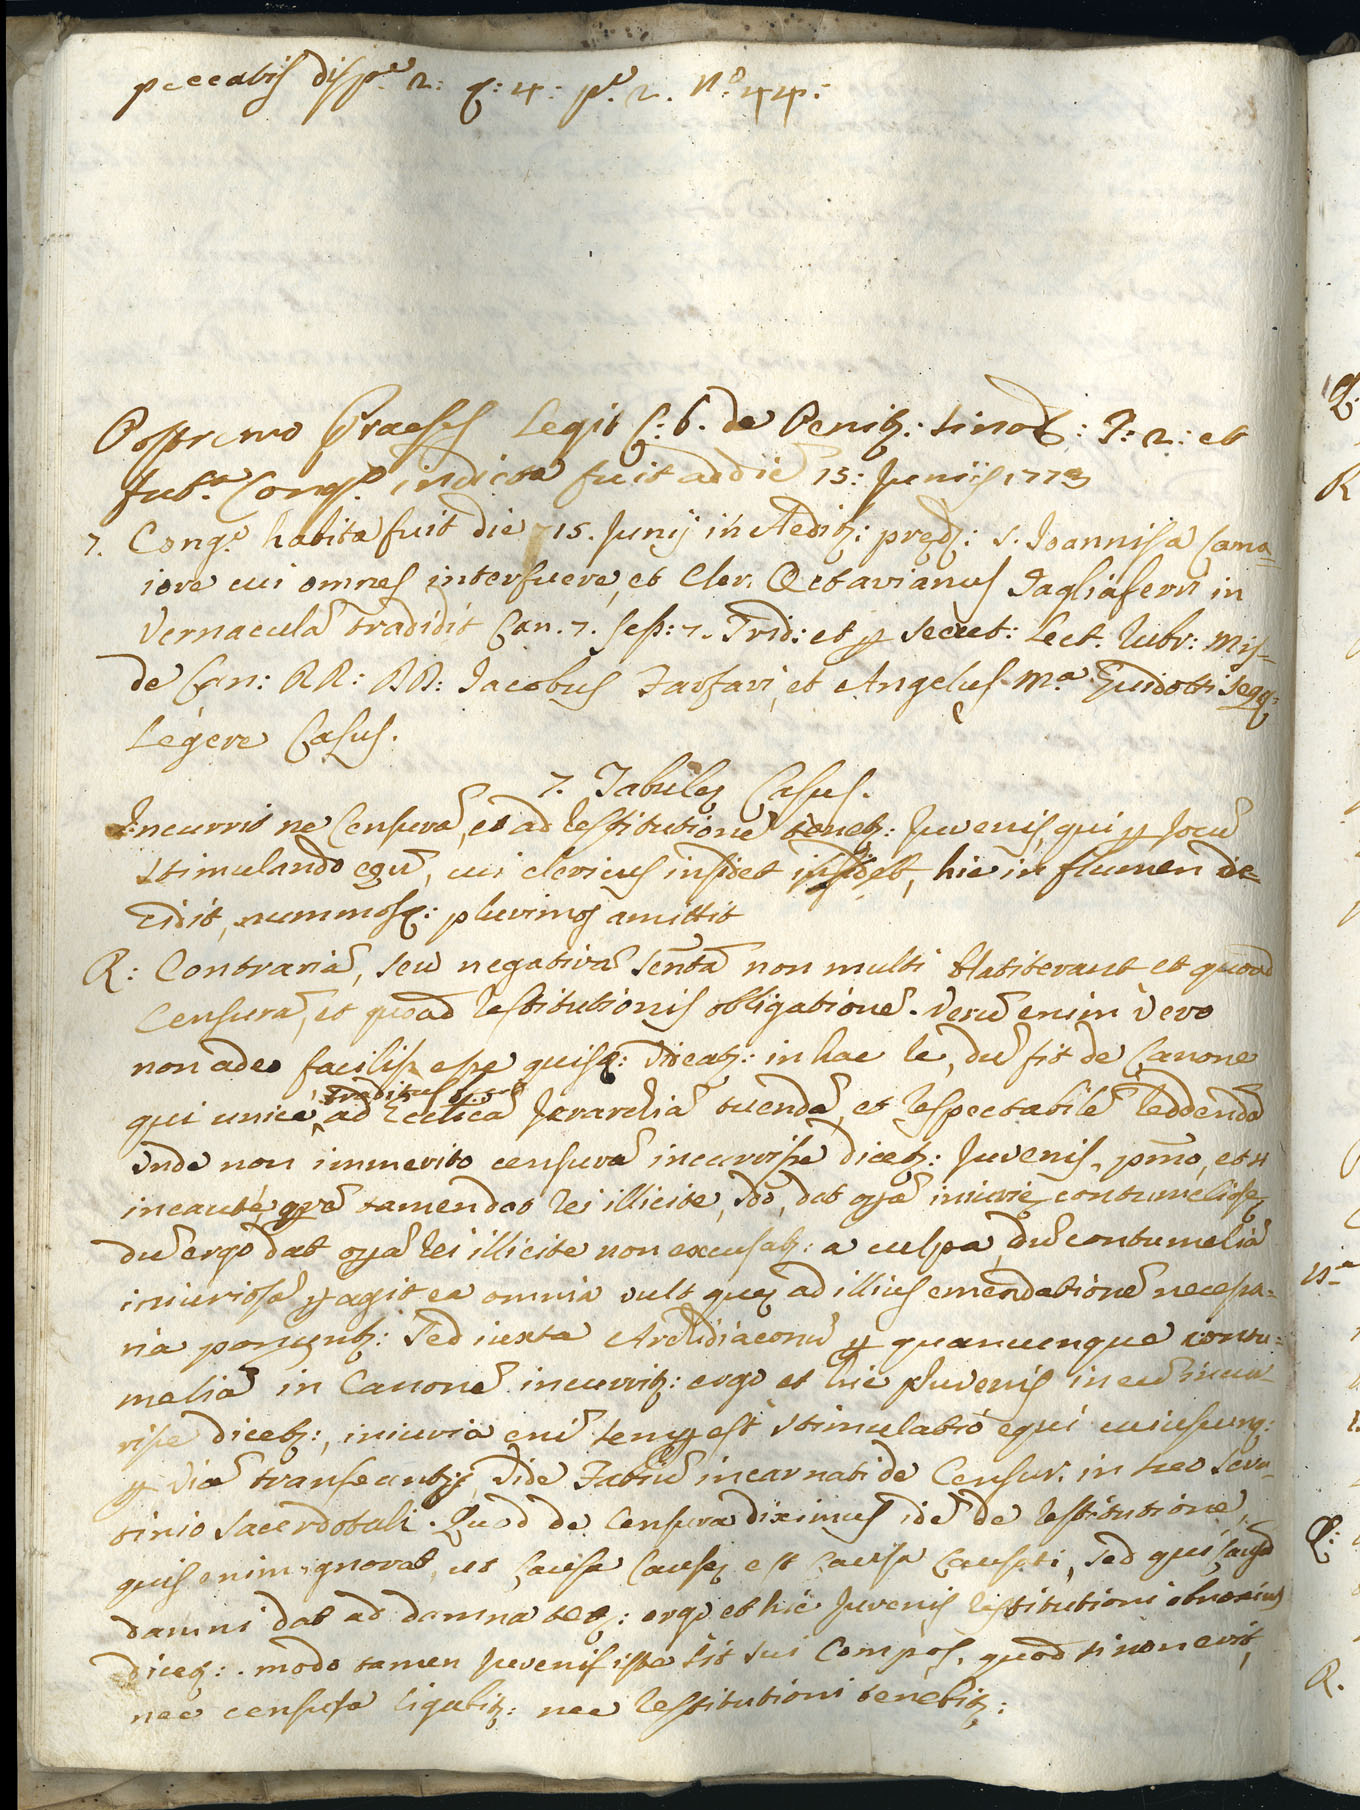 peccatis disp.e 2: q: 4: p.e 2. N.o 44:
Postremo Praeses Legit C: 6. de Penitz: sinod: T: 2: et
fut.a Cong.o indicta fuit ad die 15: Junii 1773
7. Cong.o habita fuit die 15. Junij in Aedibz: pręd: S. Joannis a Cama=
iore cui omnes interfuere, et Cler. Octavianus Tagliaferri in
Vernaculā tradidit Can. 7. sess: 7. Trid: et p secret: Lect. Rubr: Mis=
de Can: RR: DD: Jacobus Farfari, et Angelus M.a Guidotti seqq:
Legere Casus.
7. Tabulę Casus.
Incurrit ne Censurā, et ad restitutionē tenetz: Juvenis, qui p Jocū
stimulando equū, cui clericus insidet insidet, hic in flumen de=
cidit, nummosq: plurimos amittit
R: Contrariā, seu negativā sentā non multi et quoad
Censurā, et quoad restitutionis obligationē. Verū enim vero
non adeo facilis esse quisq: dicatz: in hac re, dū sit de Canone
traditus
qui unice ad Ecclicā Jerarchiā tuendā, et respectabilē reddendā
unde non immerito censurā incurrisse dicetz: Juvenis, pmo, et si
incaute, opā tamen dat rei illicite, 2do, dat opā iniurię contumeliosę,
dū ergo dat opā rei illicite non excusatz: a culpa, dū contumeliā
iniuriosā pagit ea omnia vult quę ad illius emendationē necessa=
ria ponuntz: Sed iuxta Archidiaconū p quamcunque contu=
meliā in Canonē incurritz: ergo et hic Juvenis in eū incur=
risse dicetz:, iniuria enī semp est stimulatio equi cuiuscunq:
p viā transeuntis, Vide Fabiū incarnati de Censur. in suo scru=
tinio Sacerdotali. Quod de Censura diximus idē de restitutione,
quis enim ignorat, ut Causa Causę est Causa Causati, sed qui causā
damni dat ad damna tetz: ergo et hic Juvenis restitutioni obnoxius
dicetz: . modo tamen Juvenis iste sit sui Compos, quod si non erit,
nec censura ligabitz: nec restitutioni tenebitz: